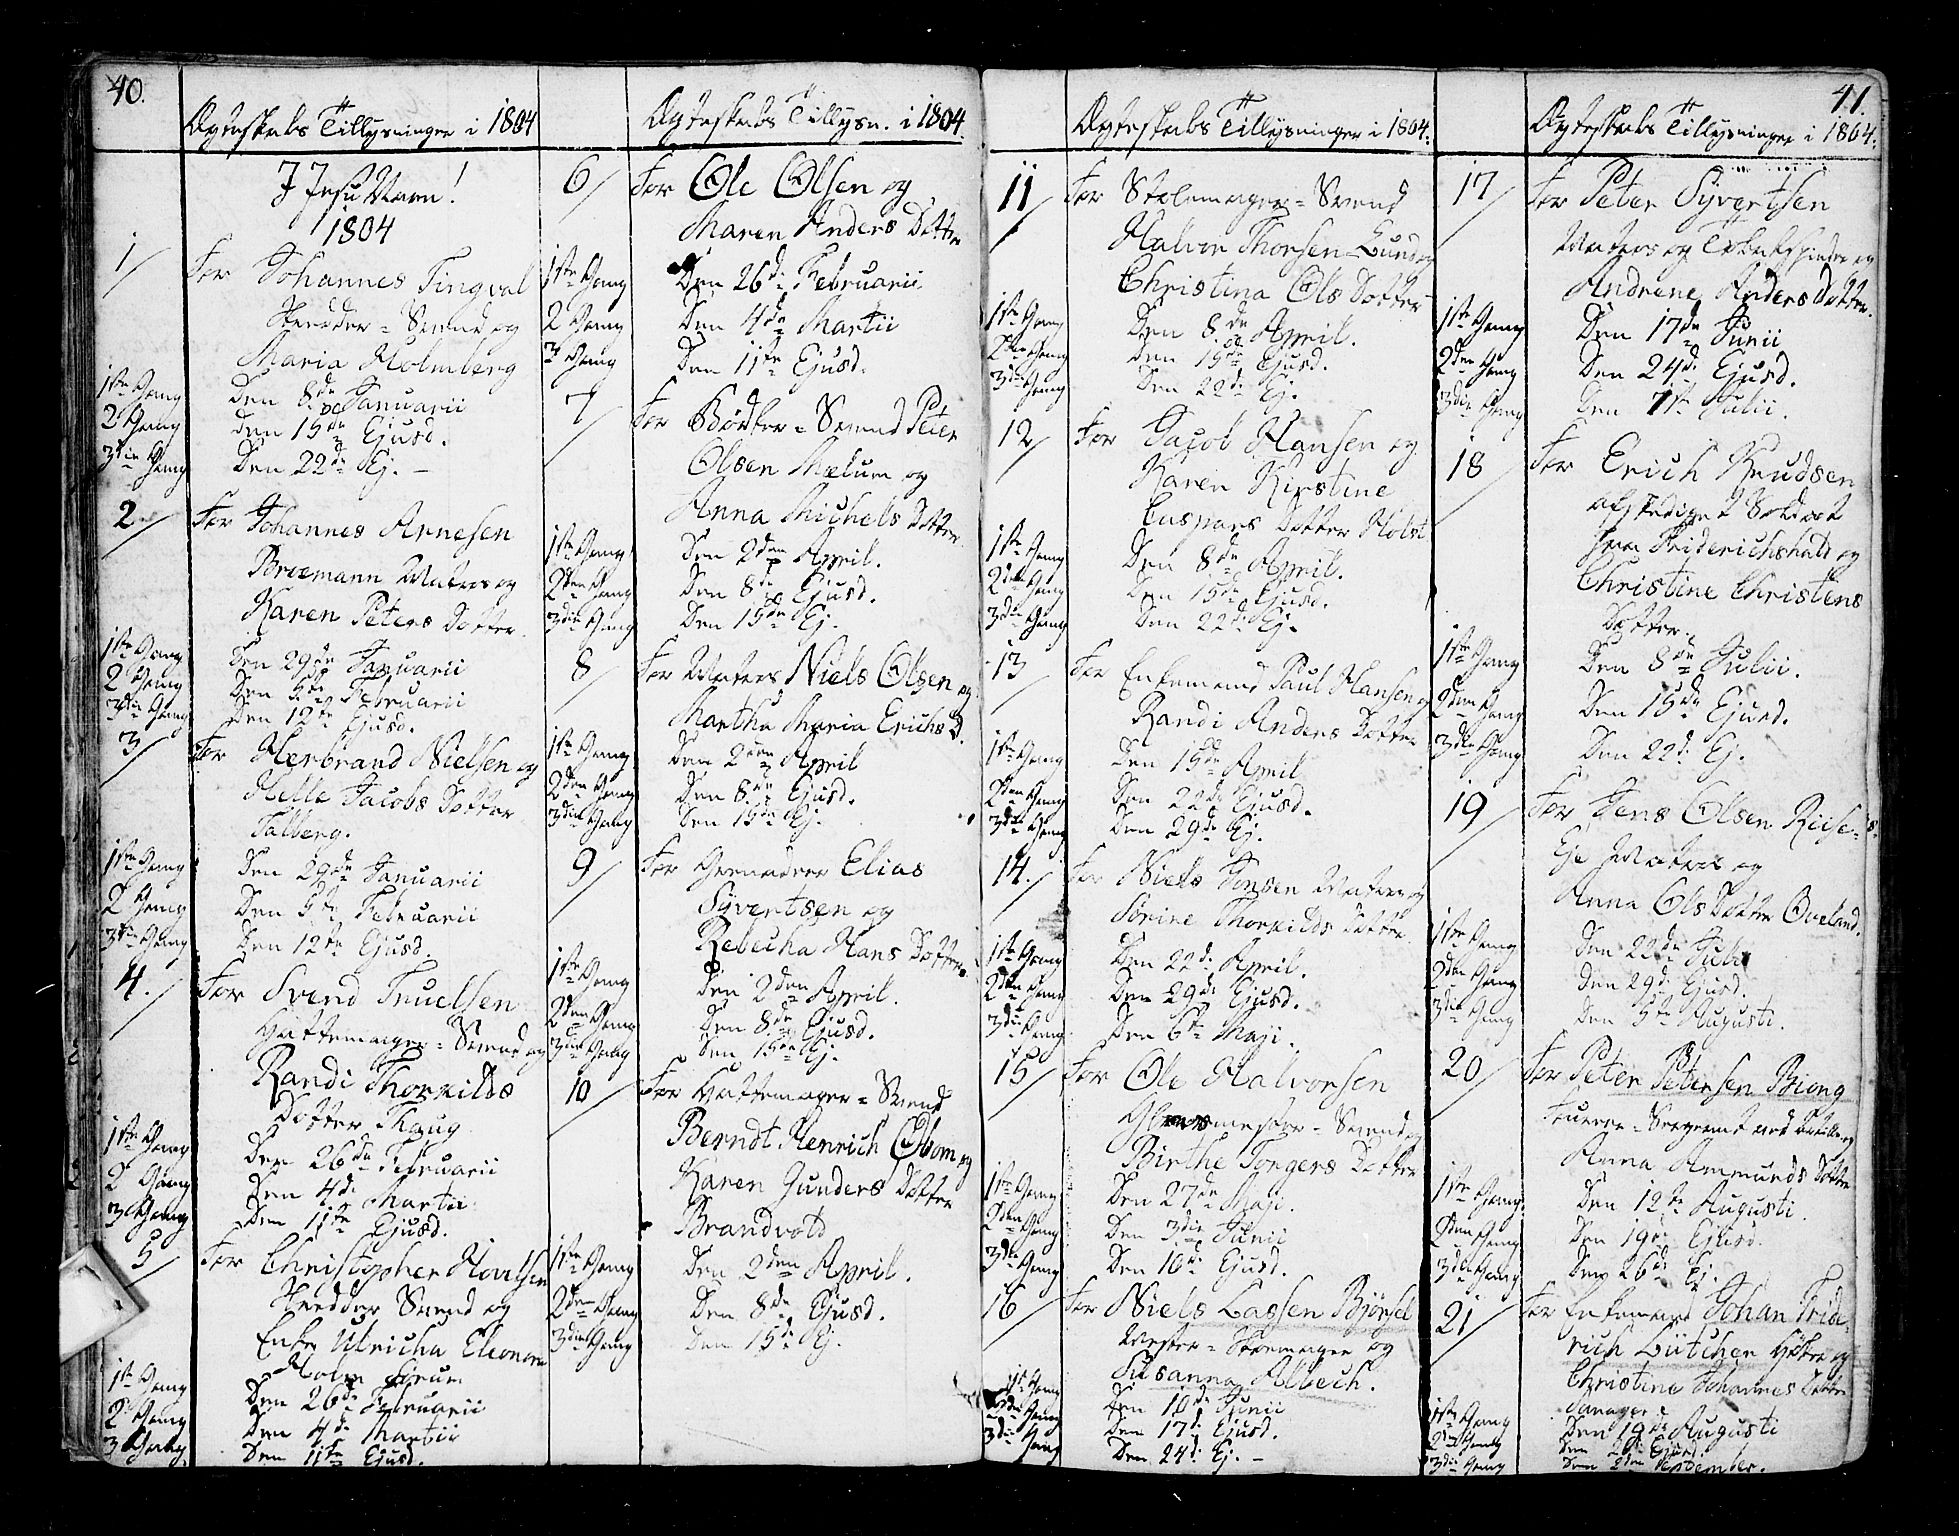 40.
Ægteskabs Tillysninger i 1804
I Jesu Navn!
1804
1/ For Johannes Tingval
Skredder-Svend og
Maria Holmberg
1ste Gang Den 8de Januarii
2 Gang Den 15de Ejusd.
3die Gang Den 22de Ej. –
2/ For Johannes Arnesen
Broemann Matros og
Karen Peters Dotter
1ste Gang Den 29de Januarii
2 Gang Den 5te Februarii
3die Gang Den 12te Ejusd.
3/ For Herbrand Nielsen og
Helle Jacobs Dotter
Talberg.
1ste Gang Den 29de Januarii
2 Gang Den 5te Februarii
3die Gang Den 12te Ejusd.
4./ For Svend Truelsen
Hattemager-Svend og
Randi Thorkilds
Dotter Thaug
1ste Gang Den 26de Februarii
2 Gang Den 4de Martii
3 Gang Den 11te Ejusd.
5/ For Christopher
Skredder Svend og
Enke Ulricha Eleonora
Holm
1ste Gang Den 26de Februarii
2 Gang Den 4de Martii
3 Gang Den 11te Ejusd.
Ægteskabs Tillysn. i 1804.
6/ For Ole Olsen og
Maren Anders Dotter
1ste Gang Den 26de Februarii
2 Gang Den 4de Martii
3 Gang Den 11te Ejusd.
7/ For Bødker-Svend Peter
Olsen Mælum og
Anna Michels Dotter
1ste Gang Den 2den April.
2den Gang Den 8de Ejusd.
3die Gang Den 15de Ej.
8/ For Matros Niels Olsen og
Martha Maria Erichs D.
1ste Gang Den 2den April
2den Gang Den 8de Ejusd.
3die Gang Den 15de Ej.
9/ For Grenadeer Elias
Syvertsen og
Rebecha Hans Dotter.
1ste Gang Den 2den April.
2den Gang Den 8de Ejusd.
3die Gang Den 15de Ej.
10/ For Hattemager-Svend
Berndt Henrich Obom og
Karen Gunders Dotter
Brandvold
1ste Gang Den 2den April.
2den Gang Den 8de Ejusd.
3die Gang Den 15de Ej.
Ægteskabs Tillysninger i 1804.
11/ For Stolemager-Svend
Halvor Thorsen Lund og
Christina Ols Dotter
1ste Gang Den 8de April.
2den Gang Den 15de Ejusd.
3die Gang Den 22de Ej.
12/ For Jacob Hansen og
Karen Kirstine
Caspars Dotter Holst
1ste Gang Den 8de April.
2den Gang Den 15de Ejusd.
3die Gang Den 22de Ej.
13/ For Enkemand Paul Hansen og
Randi Anders Dotter
1ste Gang Den 15de April
2den Gang Den 22de Ejusd.
3die Gang Den 29de Ej.
14./ For Niels Jonsen Matros og
Sørine Thorkilds Dotter
1ste Gang Den 22de April.
2den Gang Den 29de Ejusd.
3die Gang Den 6te Maji.
15/ For Ole Halvorsen
Glarmester-Svend og
Birthe Tongers Dotter
1ste Gang Den 27de Maji.
2den Gang Den 3die Junii
3die Gang Den 10de Ejusd.
16/ For Niels Lassen Bjørsel
Mester-Skomager og
Susanna Albech.
1ste Gang Den 10de Junii
2den Gang Den 17de Ejusd.
3die Gang Den 24de Ej. –
41.
Ægteskabs Tillysninger i 1804.
17/ For Peter Syvertsen
Matros og Tobakspinder og
Andrene Anders Dotter.
1ste Gang Den 17de Junii
2den Gang Den 24de Ejusd.
3die Gang Den 1ste Julii.
18/ For Erich Knudsen
afskediget Soldat
fra Friderichshald og
Christine Christens
Dotter.
1ste Gang Den 8de Julii.
2den Gang Den 15de Ejusd.
3die Gang Den 22de Ej.
19/ For Jens Olsen Riise-
Eje Matros og
Anna Ols Dotter Oveland.
1ste Gang Den 22de Julii
2den Gang Den 29de Ejusd.
3die Gang Den 5te Augusti.
20/ For Peter Petersen Biong
og
Anna Amunds Dotter
1ste Gang Den 12te Augusti.
2den Gang Den 19de Ejusd.
3die Gang Den 26de Ej.
21/ For Enkemand Johan Fride-
rich Lütcher Høker og
Christine Johannes Dotter
1ste Gang Den 19de Augusti
2den Gang Den 26de Ejusd.
3die Gang Den 2den September.